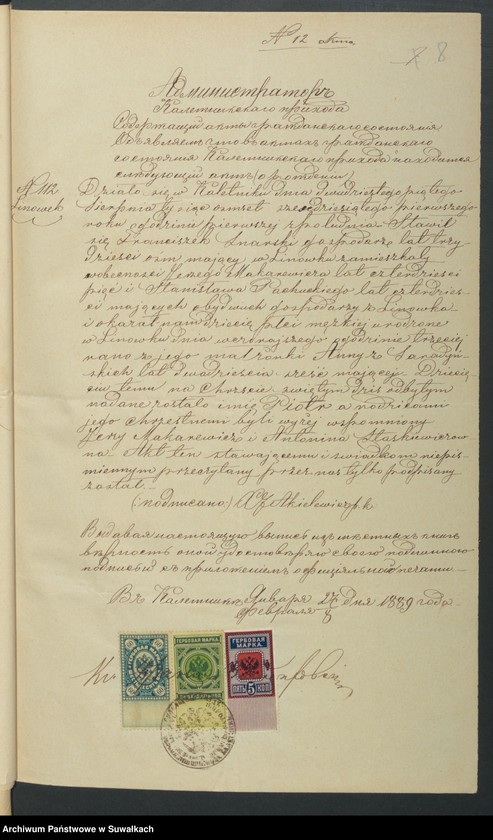 № 12 акта
8
Администраторъ
Калетникскаго прихода
Содержащій акты гражданскаго состоянія
Объявляетъ что въ актахъ гражданскаго
состоянія Калетникскаго прихода находится
слѣдующій актъ (о рожденіи)
№ 112
Linówek
Działo się w Kaletniku dnia dwudziestego piątego
Sierpnia tysiąc osmset sześćdziesiątego pierwszego
roku o godzinie pierwszej z południa. Stawił
się Franciszek Znarski gospodarz lat trzy-
dzieści ośm mający w Linówku zamieszkały
w obecności Jerzego Makarewicza lat czterdzieści
pięć i Stanisława lat czterdzieś-
ci mających obydwuch gospodarzy z Linówka
i okazał nam dziecię płci męzkiej urodzone
w Linówku dnia wczorajszego o godzinie trzeciej
rano z jego małżonki Anny z
lat dwadzieścia sześć mającej. Dziecię-
ciu temu na Chrzcie świętym dziś odbytym
nadane zostało imię Piotr a rodzicami
jego chrzestnemi byli wyżej wspomniony
Jerzy Makarewicz i Antonina Staskiewiczow-
na. Akt ten stawającemu i świadkom niepis-
miennym przeczytany przez nas tylko podpisany
został. —
(подписано) X Akielewicz
Выдавая настоящую выпись изъ метныхъ книгъ
вѣрность оной удостовѣряю своею подписью
съ приложеніемъ оффиціальной печати. —
Въ Калетникъ Января 27 дня 1889 года.
Февраля 8
ГЕРБОВАЯ МАРКА
ГЕРБОВАЯ МАРКА
ПЯТЬ 5 КОП
Archiwum Państwowe w Suwałkach